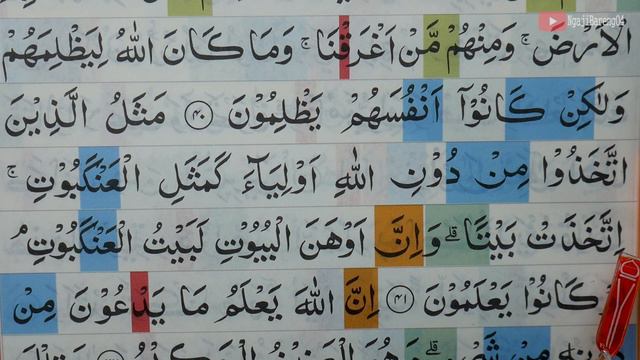 NgajiBareng04
الْاَرْضَۚ وَمِنْهُمْ مَّنْ اَغْرَقْنَاۚ وَمَا كَانَ اللّٰهُ لِيَظْلِمَهُمْ
وَلٰكِنْ كَانُوْٓا اَنْفُسَهُمْ يَظْلِمُوْنَ ٤٠ مَثَلُ الَّذِيْنَ
اتَّخَذُوْا مِنْ دُوْنِ اللّٰهِ اَوْلِيَاۤءَ كَمَثَلِ الْعَنْكَبُوْتِۚ
اِتَّخَذَتْ بَيْتًاۗ وَاِنَّ اَوْهَنَ الْبُيُوْتِ لَبَيْتُ الْعَنْكَبُوْتِۘ
كَانُوْا يَعْلَمُوْنَ ٤١ اِنَّ اللّٰهَ يَعْلَمُ مَا يَدْعُوْنَ مِنْ